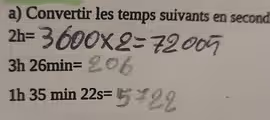 a) Convertir les temps suivants en second
2h= 3600×2=7200s
3h 26min= 206
1h 35 min 22s= 5722